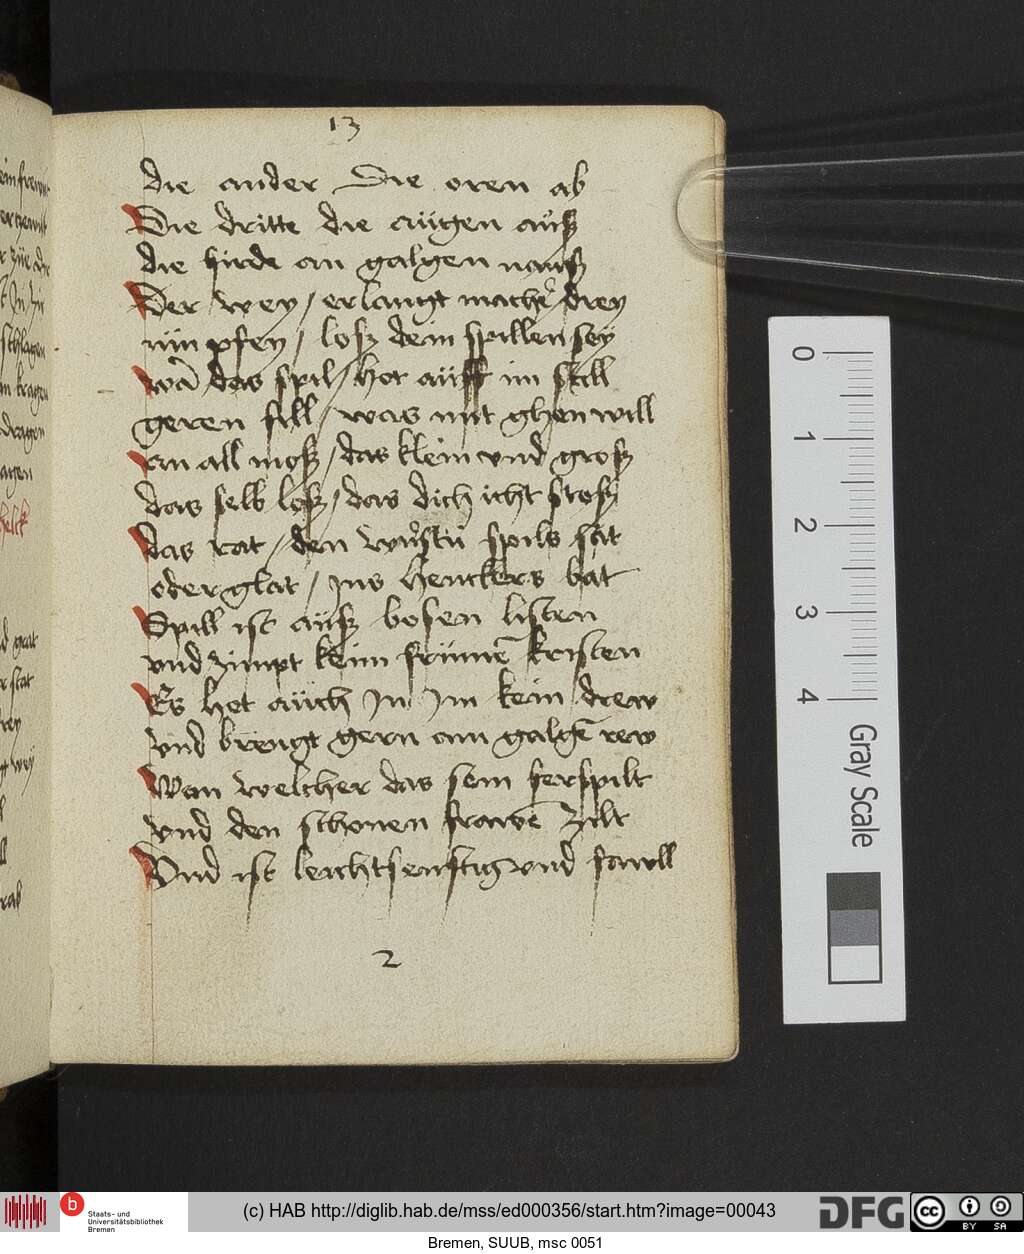 13
die ander Die oren ab
Die dritte die aügen auß
die hirde an galgen nauß
Der wey / er langt macht drey
nim pfey / loß dein spillen sey
wā das spil / het aüff im still
geren fill / was mit ghen will
an all moß / das klein vnd groß
das selb loß / das dich icht stoß
das rat / den wůstū spils sat
oder glat / ins henckers bat
Spill ist aüß bosen listen
vnd zimpt keim frümē kristen
Es het aüch In Im kein drew
vnd brengt gern am galgē rew
Wan welcher das sein ferspilt
vnd den schonen frawē zilt
Vnd ist leichtsenftig vnd fawll
2
0
1
2
3
4
Gray Scale
b
Staats- und
Universitätsbibliothek
Bremen
(c) HAB http://diglib.hab.de/mss/ed000356/start.htm?image=00043
DFG
cc BY SA
Bremen, SUUB, msc 0051